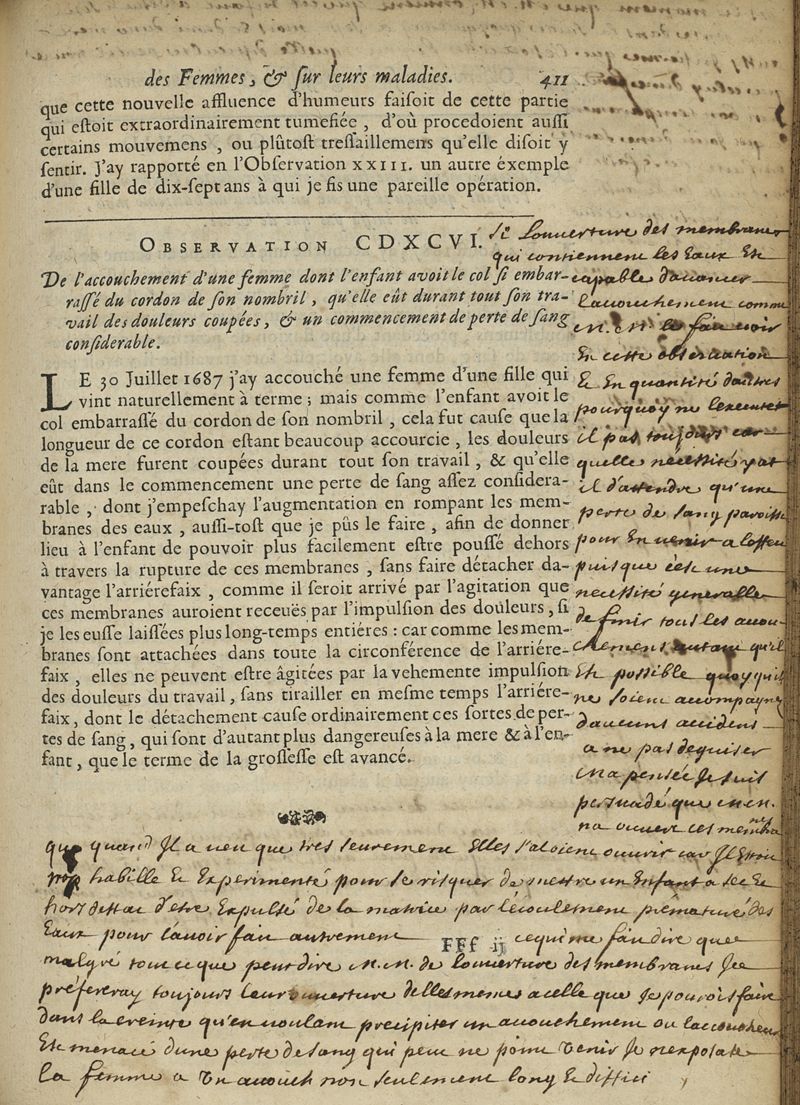 des Femmes, & ſur leurs maladies. 411
que cette nouvelle affluence d'humeurs faiſoit de cette partie
qui eſtoit extraordinairement tumefiée, d'où procedoient auſſi
certains mouvemens, ou plûtoſt treſſaillemens qu'elle diſoit y
ſentir. J'ay rapporté en l'Obſervation XXIII. un autre éxemple
d'une fille de dix-ſept ans à qui je fis une pareille opération.
OBSERVATION CDXCVI.
De l'accouchement d'une femme dont l'enfant avoit le col ſi embar-
raſſé du cordon de ſon nombril, qu'elle eût durant tout ſon tra-
vail des douleurs coupées, & un commencement de perte de ſang
conſiderable.
LE 30 Juillet 1687 j'ay accouché une femme d'une fille qui
vint naturellement à terme; mais comme l'enfant avoit le
col embarraſſé du cordon de ſon nombril, cela fut cauſe que la
longueur de ce cordon eſtant beaucoup accourcie, les douleurs
de la mere furent coupées durant tout ſon travail, & qu'elle
eût dans le commencement une perte de ſang aſſez conſidera-
rable, dont j'empeſchay l'augmentation en rompant les mem-
branes des eaux, auſſi-toſt que je pûs le faire, afin de donner
lieu à l'enfant de pouvoir plus facilement eſtre pouſſé dehors
à travers la rupture de ces membranes, ſans faire détacher da-
vantage l'arriérefaix, comme il ſeroit arrivé par l'agitation que
ces membranes auroient receuës par l'impulſion des douleurs, ſi
je les euſſe laiſſées plus long-temps entiéres: car comme les mem-
branes ſont attachées dans toute la circonférence de l'arriére-
faix, elles ne peuvent eſtre âgitées par la vehemente impulſion
des douleurs du travail, ſans tirailler en meſme temps l'arriére-
faix, dont le détachement cauſe ordinairement ces ſortes de per-
tes de ſang, qui ſont d'autant plus dangereuſes à la mere & à l'en-
fant, que le terme de la groſſeſſe eſt avancé.
Si Louverture des membranes
qui contiennent les Eaux Est
capable davancer
Lacouchement comme
m. m. le fait voir
En cette observation
& En quantité dautres
pourquoy ne lexecute
il pas toujours car
quelle necessité y at
il dattendre qu'une
perte de sang paroisse
pour En venir a leffect
puisque cest une
necessité generalle
de finir tous les acou
chemens autant qu'il
Est possible quoy quils
ne soient acompagnes
daucuns accidens
a ne pas deguiser
ma pensée Je suis
persuadé que m. m.
na ouvert ces membranes
que quand Il a veu que tres seurement Elles saloient ouvrir car Il Etoit
trop habille & Experimenté pour se risquer de mettre un Enfant a sec &
hors destat d'etre Expulsé de la matrice par lécoulement prématuré des
Eaux pour lavoir fait autrement ce qui me fait dire que
FFf ij
malgré tout ce que peut dire m. m. de Louverture des membranes Je
prefereray toujours leur ouverture dellesmemes a celle que Je pourois faire
dans la creinte qu'en voulant precipiter un acouchement ou laccouchée
Est menacé dune perte de sang qui peut ne point venir Je nexposasse
la femme a Un acouch non seulement long & diffici